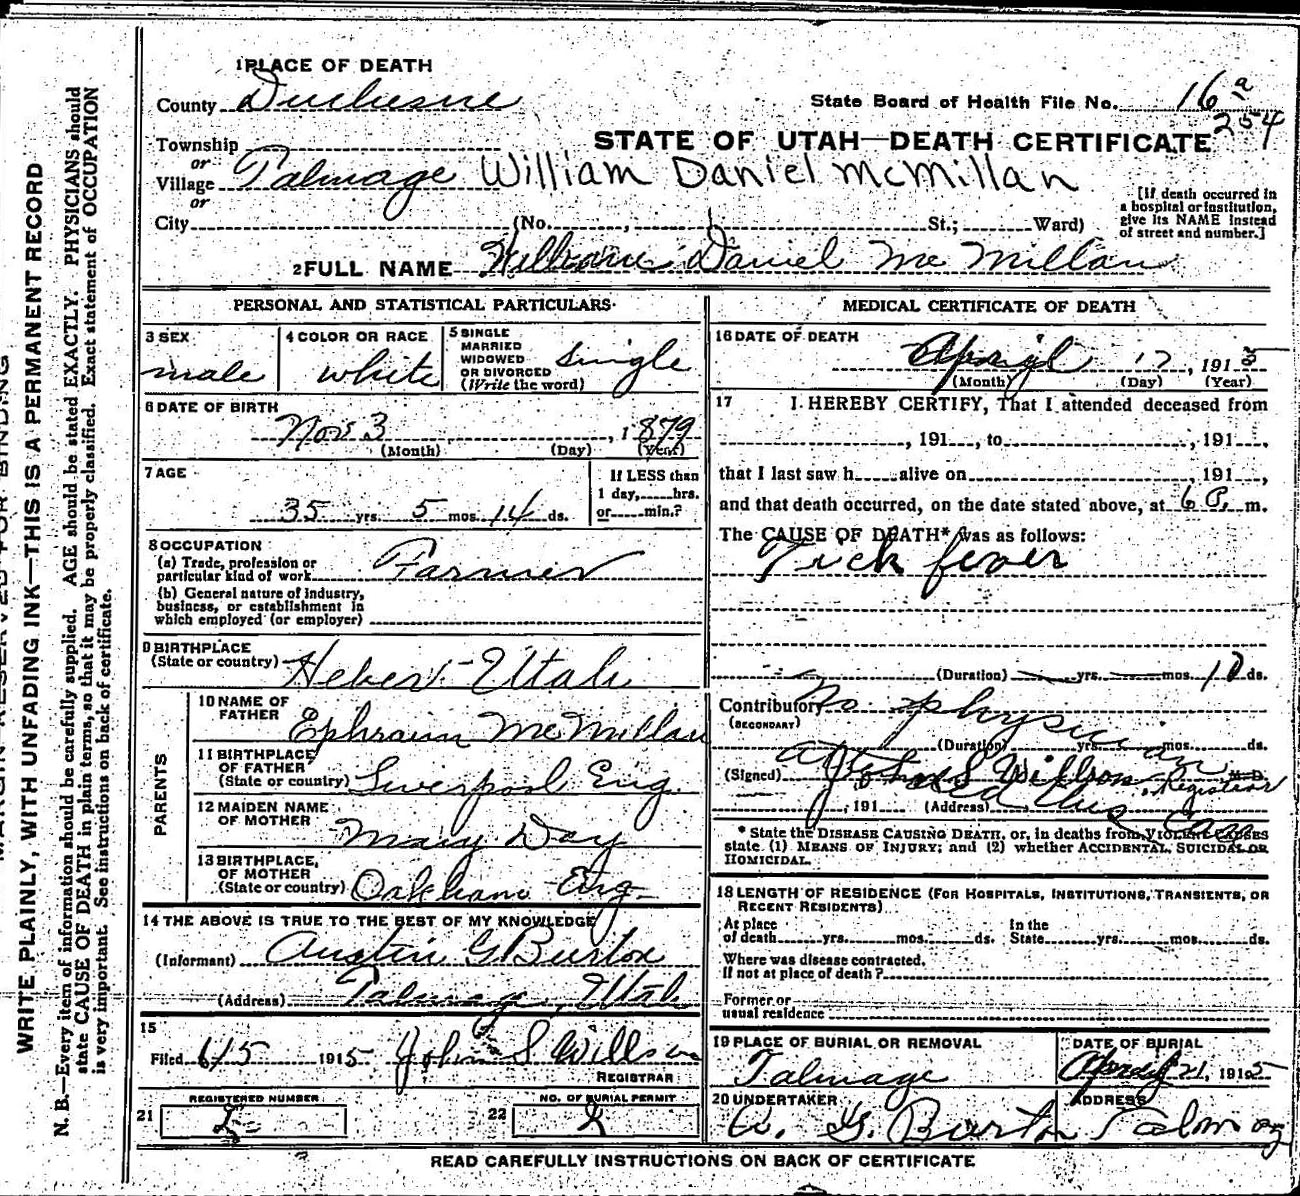 1 PLACE OF DEATH
County Duchesne
State Board of Health File No. 16
254
Township
STATE OF UTAH—DEATH CERTIFICATE
or
Village Talmage William Daniel McMillan
or
[If death occurred in a hospital or institution, give its NAME instead of street and number.]
City (No. , St.; Ward)
2 FULL NAME William Daniel Mc Millan
PERSONAL AND STATISTICAL PARTICULARS
3 SEX
male
4 COLOR OR RACE
white
5 SINGLE
MARRIED
WIDOWED
OR DIVORCED
(Write the word)
single
6 DATE OF BIRTH
Nov 3 , 1879
(Month) (Day) (Year)
7 AGE
35 yrs. 5 mos. 14 ds.
If LESS than
1 day, hrs.
or min.?
8 OCCUPATION
(a) Trade, profession or
particular kind of work Farmer
(b) General nature of industry,
business, or establishment in
which employed (or employer)
9 BIRTHPLACE
(State or country) Heber Utah
PARENTS
10 NAME OF
FATHER Ephraim McMillan
11 BIRTHPLACE
OF FATHER
(State or country) Liverpool Eng.
12 MAIDEN NAME
OF MOTHER Mary Day
13 BIRTHPLACE
OF MOTHER
(State or country) Eng
14 THE ABOVE IS TRUE TO THE BEST OF MY KNOWLEDGE
(Informant) Austin G Burton
(Address) Talmage, Utah
15
Filed 6/5 1915 John S Willson
REGISTRAR
21 REGISTERED NUMBER
22 NO. OF BURIAL PERMIT
MEDICAL CERTIFICATE OF DEATH
16 DATE OF DEATH
April 17, 1915
(Month) (Day) (Year)
17 I HEREBY CERTIFY, That I attended deceased from
, 191 , to , 191 ,
that I last saw h alive on , 191 ,
and that death occurred, on the date stated above, at 6 P. m.
The CAUSE OF DEATH* was as follows:
Tick fever
(Duration) yrs. mos. 10 ds.
Contributory No physician
(SECONDARY)
(Duration) yrs. mos. ds.
attended this case
(Signed) John S Willson, Registrar M. D.
, 191 (Address)
* State the DISEASE CAUSING DEATH, or, in deaths from VIOLENT CAUSES
state (1) MEANS OF INJURY; and (2) whether ACCIDENTAL, SUICIDAL OR
HOMICIDAL.
18 LENGTH OF RESIDENCE (FOR HOSPITALS, INSTITUTIONS, TRANSIENTS, OR
RECENT RESIDENTS)
At place
of death yrs. mos. ds.
In the
State yrs. mos. ds.
Where was disease contracted,
if not at place of death?
Former or
usual residence
19 PLACE OF BURIAL OR REMOVAL
Talmage
DATE OF BURIAL
April 21, 1915
20 UNDERTAKER
A. G. Burton
ADDRESS
Talmage
READ CAREFULLY INSTRUCTIONS ON BACK OF CERTIFICATE
MARGIN RESERVED FOR BINDING
WRITE PLAINLY, WITH UNFADING INK—THIS IS A PERMANENT RECORD
N. B.—Every item of information should be carefully supplied. AGE should be stated EXACTLY. PHYSICIANS should
state CAUSE OF DEATH in plain terms, so that it may be properly classified. Exact statement of OCCUPATION
is very important. See instructions on back of certificate.